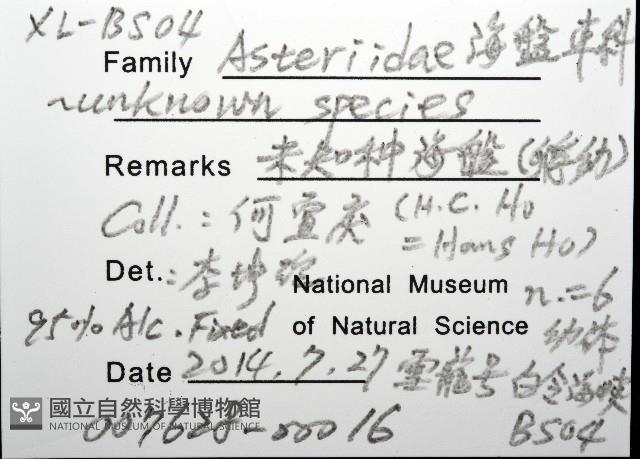 XL-BS04
Family Asteriidae 海盤車科
~unknown species
Remarks 未知种海盤(孵幼)
Coll.: 何宣慶 (H.C. Ho
= Hans Ho)
Det.: 李坤瑄
National Museum n.=6
95% Alc. Fixed of Natural Science 幼体
Date 2014.7.27 雪龍号 白令海峽
國立自然科學博物館
NATIONAL MUSEUM OF NATURAL SCIENCE
-00016 BS04